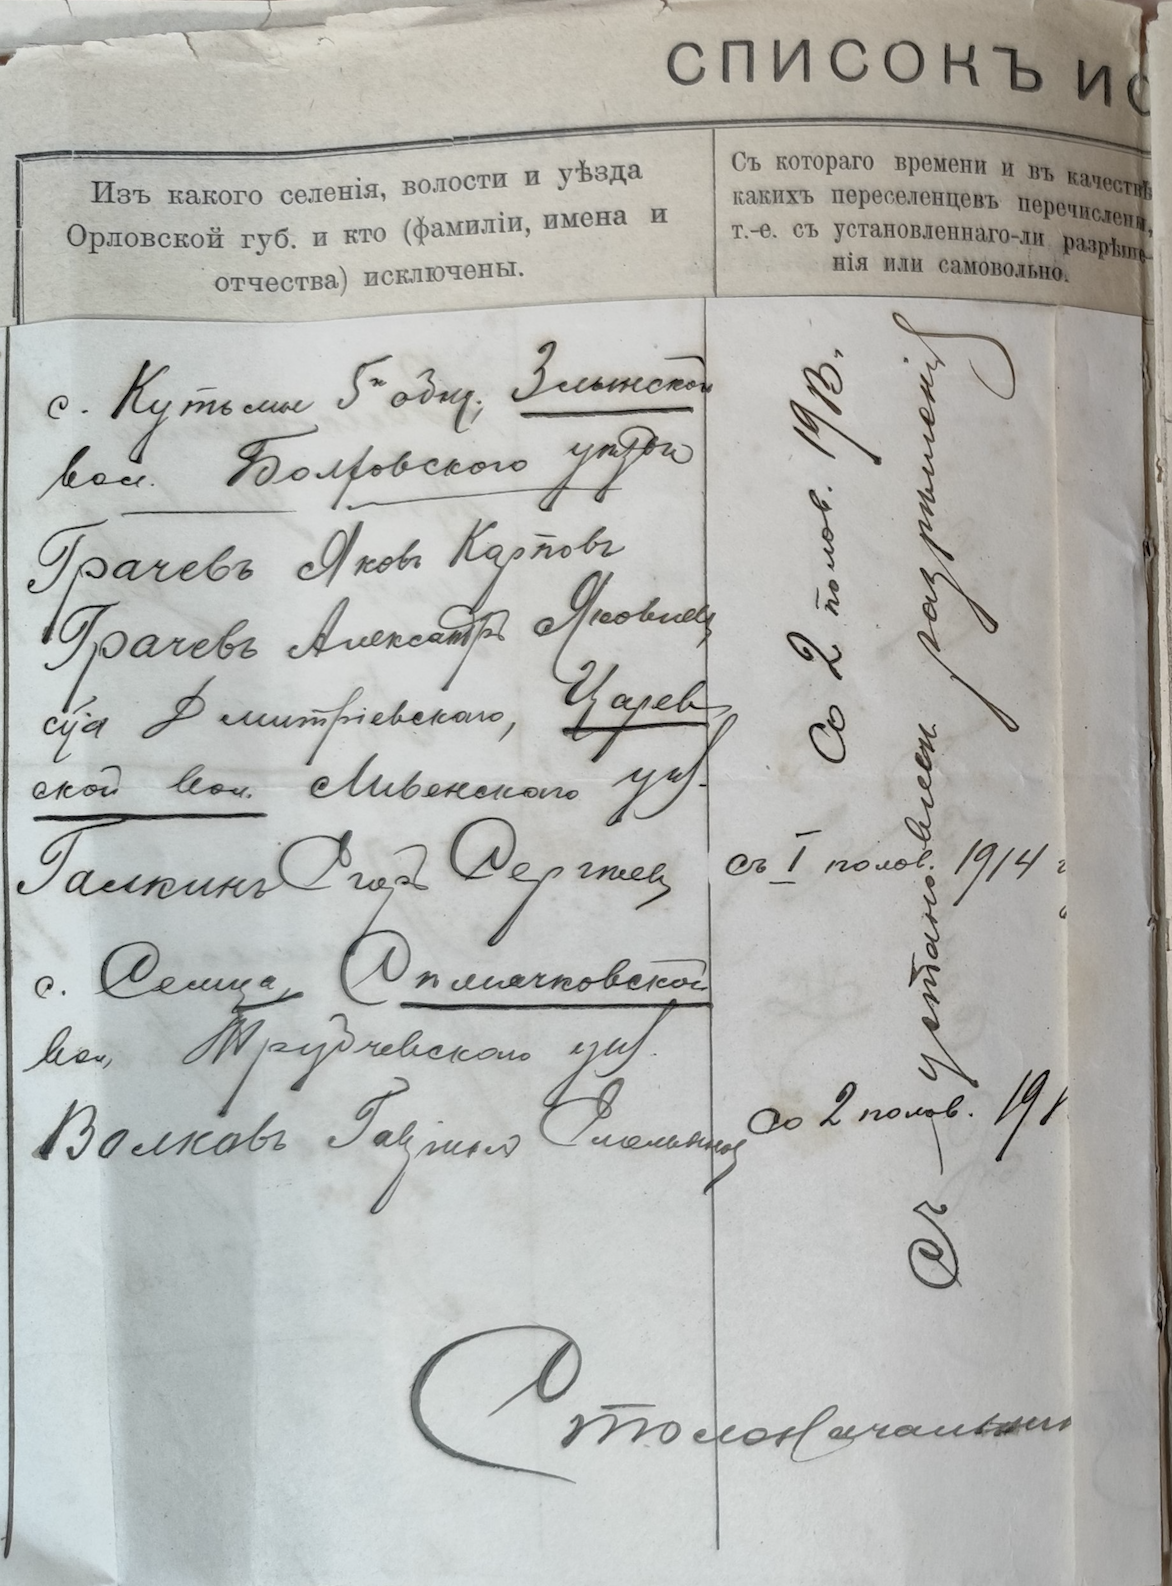 СПИСОКЪ ИС
Изъ какого селенія, волости и уѣзда
Орловской губ. и кто (фамиліи, имена и
отчества) исключены.
Съ котораго времени и въ качествѣ
какихъ переселенцевъ перечислены,
т.-е. съ установленнаго-ли разрѣше-
нія или самовольно.
с. Кутьмы 5го общ., Злынской
вол. Болховского уѣзда
Грачевъ Яковъ Карповъ
Грачевъ Александръ Яковлев
Со 2 полов. 1913.
сца Дмитріевскаго, Царев
ской вол. Ливенскаго уѣз.
Галкинъ Егоръ Сергѣев
съ I полов. 1914 г
с. Селица,
вол. Трубчевскаго уѣз.
Волковъ Емельянов
со 2 полов. 191
Съ установлен разрѣшенія
Столоначальник